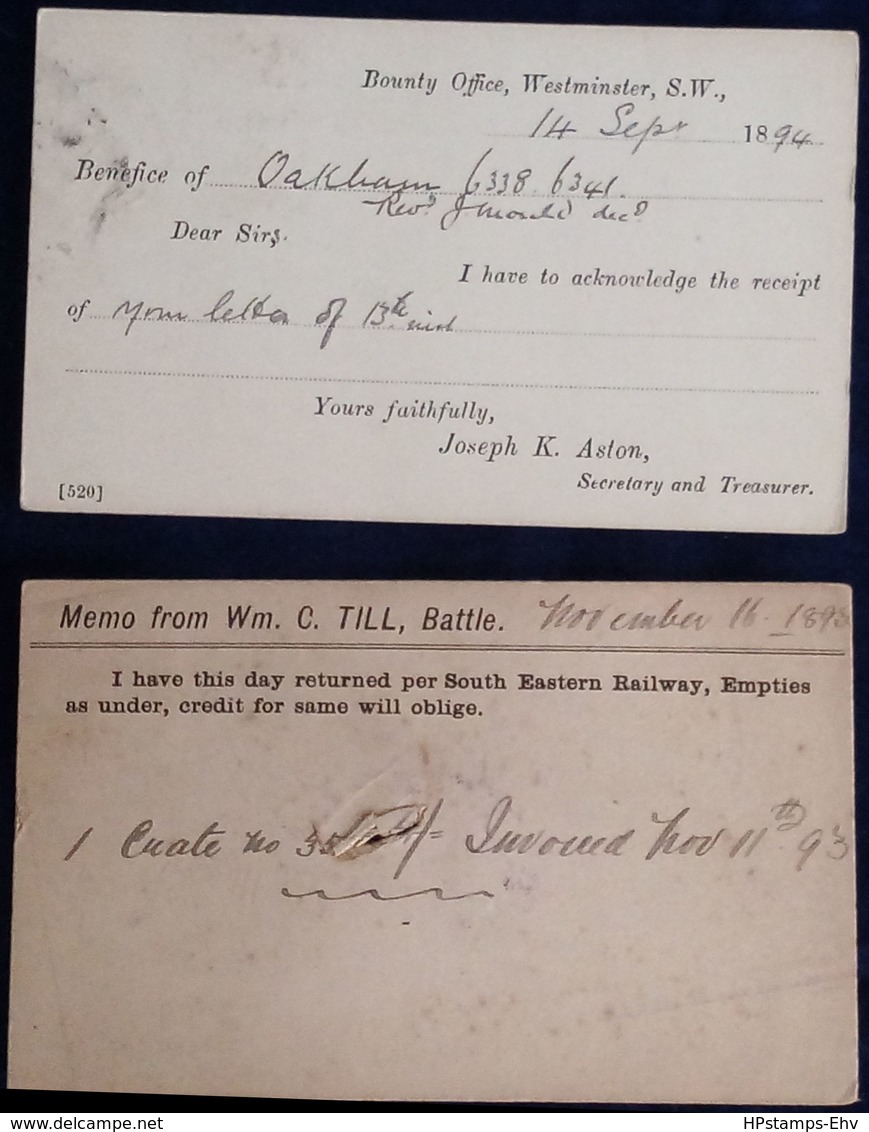 Bounty Office, Westminster, S.W.,
14 Sepr 1894
Benefice of Oakham 6338. 6341.
Revd J Mould decd
Dear Sirs.
I have to acknowledge the receipt
of your letter of 13th inst
Yours faithfully,
Joseph K. Aston,
Secretary and Treasurer.
[520]
Memo from Wm. C. TILL, Battle. November 16 1893
I have this day returned per South Eastern Railway, Empties
as under, credit for same will oblige.
1 Crate no Invoiced Nov 11th 93
delcampe.net
HPstamps-Ehv